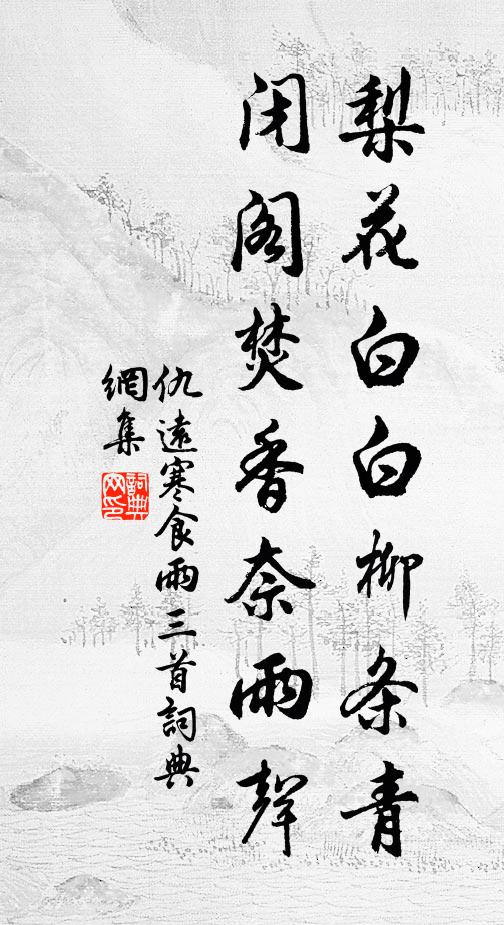 梨花白白柳条青
闭阁焚香奈雨聲
仇遠寒食雨三首詞典
網集
詞典
网印